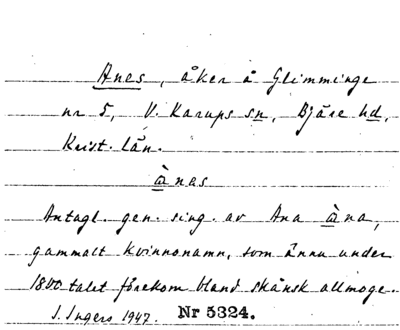 Anes, åker å Glimminge
nr 5, V. Karups sn, Bjäre hd,
Krist. län.
ànas
Antagl. gen. sing. av Ana àna,
gammalt kvinnonamn, som ännu under
1800 talet förekom bland skånsk allmoge.
I. Ingers 1947. Nr 5324.